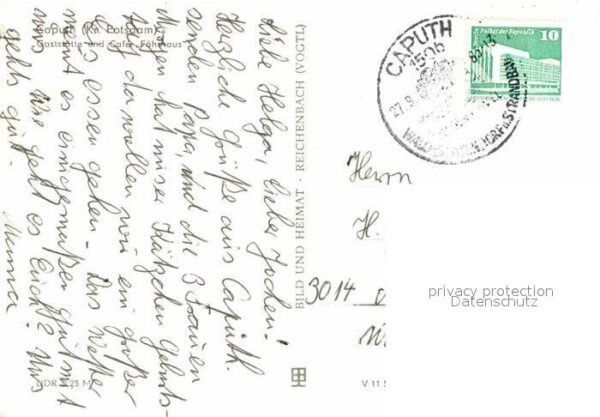 Caputh (Kr. Potsdam)
Gaststätte und Café „Fährhaus"
Liebe Helga, lieber Jochen!
Herzliche Grüße aus Caputh
senden Papa, und die 3 Frauen
Morgen hat unser Kätzchen Geburts-
tag da wollen wir ein großer
Eis essen gehen. Das Wetter
meint es einigermaßen gut mit
uns. Wie geht es Euch? Uns
gehts gut.
DDR 0,25 M
BILD UND HEIMAT · REICHENBACH (VOGTL)
V 11 5
CAPUTH
1506
27.9.
STRANDBAD
Palast der Republik
10
Herrn
H.
3014
privacy protection
Datenschutz